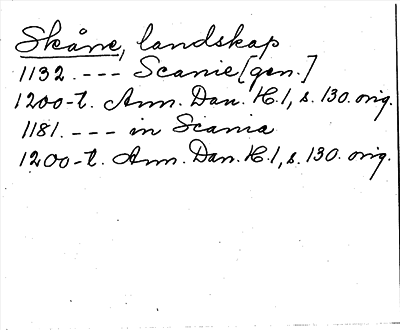 Skåne, landskap
1132. --- Scanie [gen.]
1200-t. Ann. Dan. H. 1, s. 130. orig.
1181. --- in Scania
1200-t. Ann. Dan. H. 1, s. 130. orig.